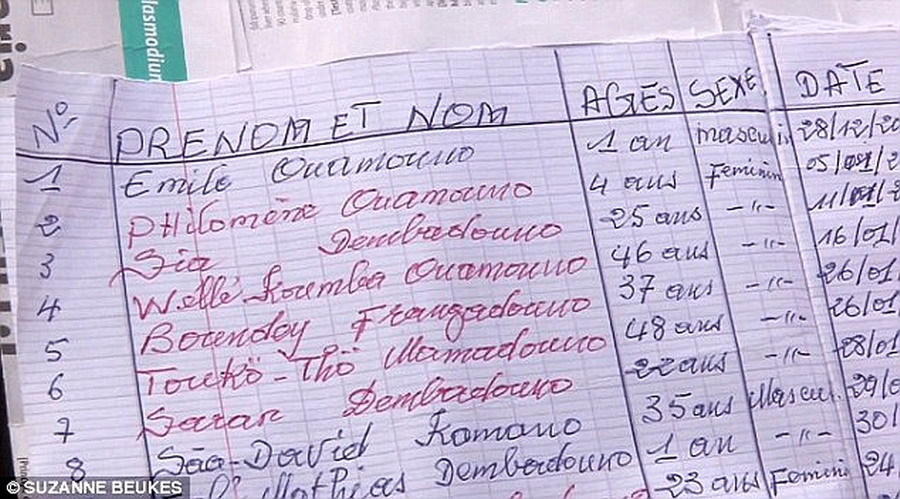 lasmodium
N° PRENOM ET NOM AGES SEXE DATE
1 Emile Ouamouno 1 an masculin 28/12/20
2 Philomène Ouamouno 4 ans Feminin 05/01/2
3 Sia Dembadouno 25 ans -"- 11/01/2
4 Wellé-Koumba Ouamouno 46 ans -"- 16/01/
5 Boundoy Frangadouno 37 ans -"- 26/01
6 Touko-Thö Mamadouno 48 ans -"- 26/01
7 Saran Dembadouno 22 ans -"- 28/01
8 Sâa-David Komano 35 ans Mascul. 29/0
Mathias Dembadouno 1 an -"- 30/
23 ans Feminin 24
© SUZANNE BEUKES